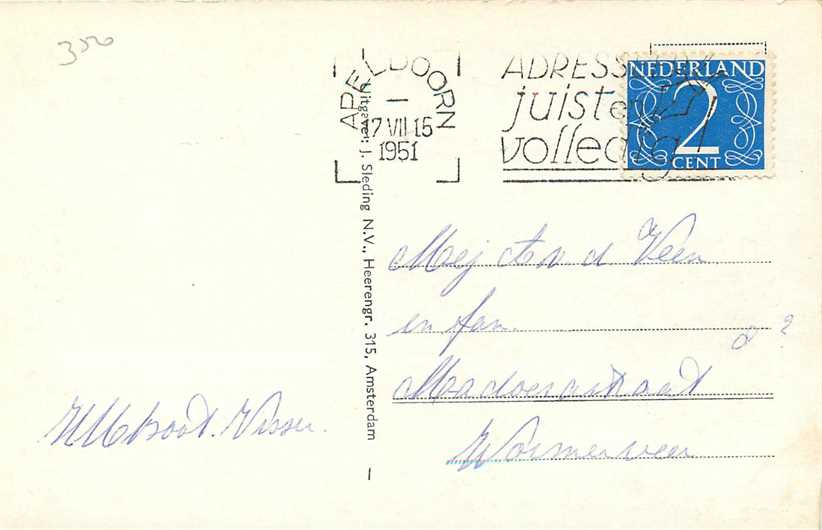 350
APELDOORN
17 VII 15
1951
ADRESS
juiste
volledig
NEDERLAND
2
CENT
Uitgave: J. Sleding N.V., Heerengr. 315, Amsterdam
Mej v d Veen
en fam.
2?
Wormerveer
Visser.